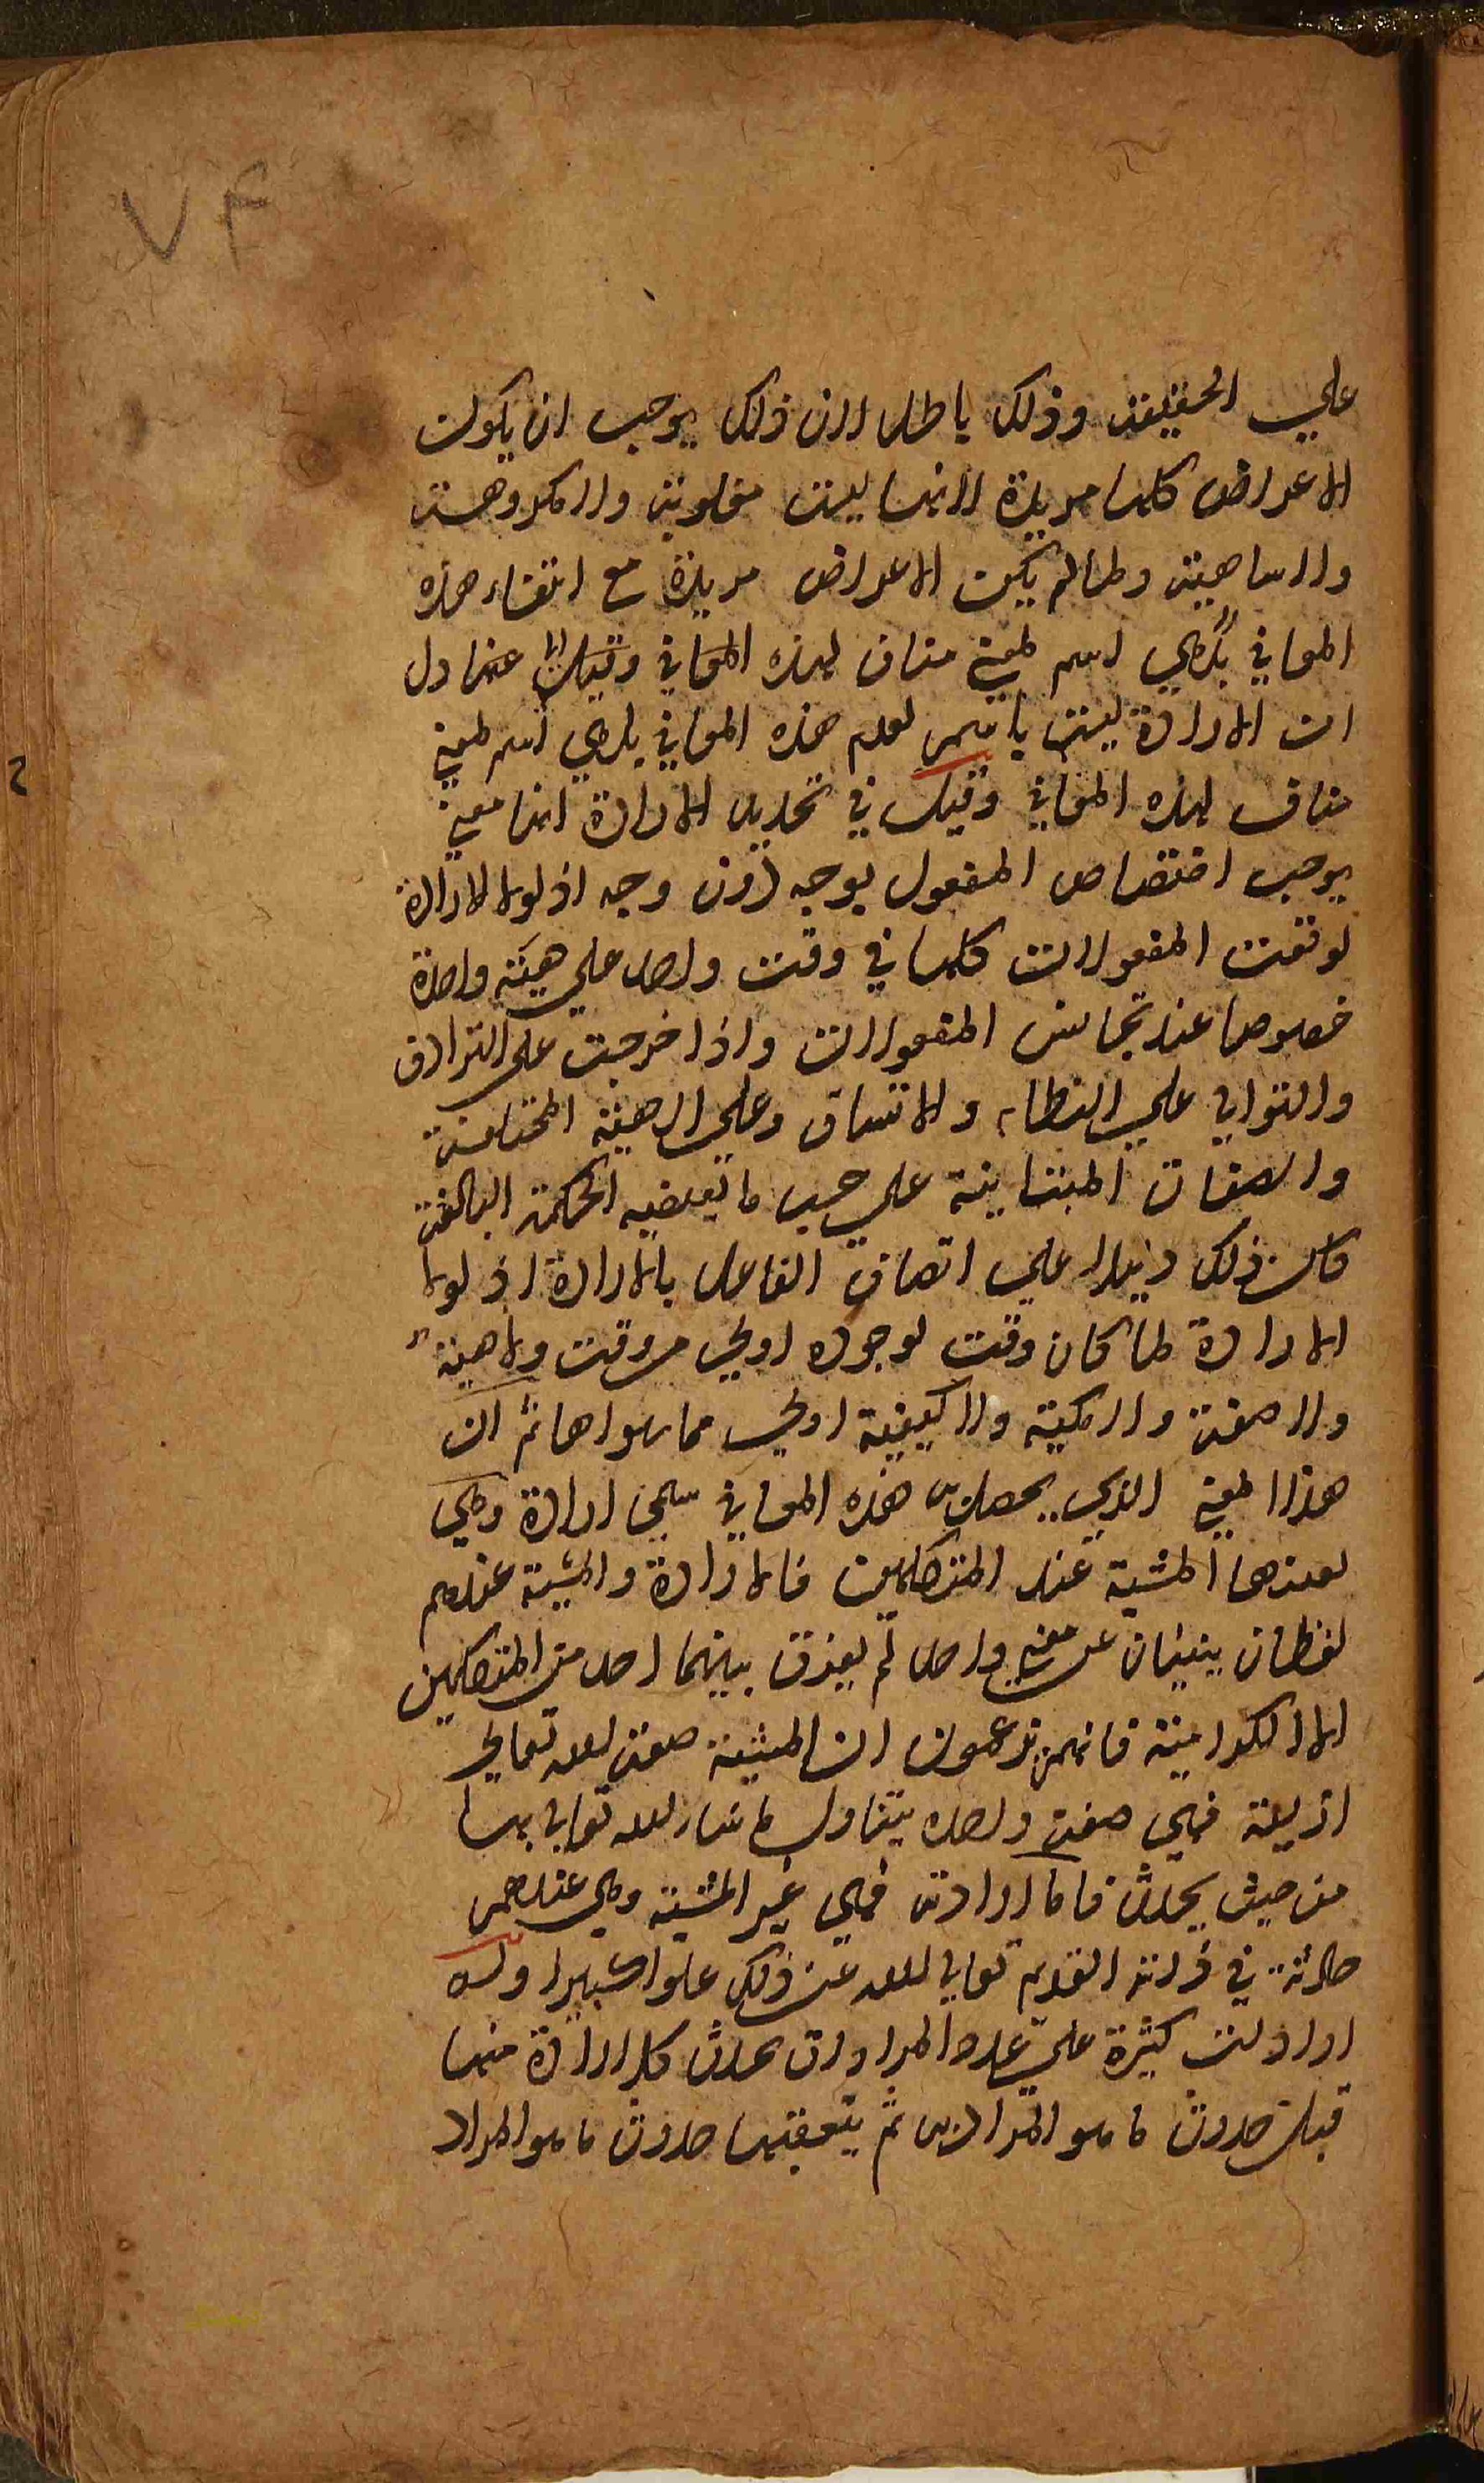 ٧٤
علي الحقيقة وذلك باطل لان ذلك يوجب ان يكون
الاعراض كلها مريدة لانها ليست مغلوبة ولا مكروهة
ولا ساهية ولما لم يكن الاعراض مريدة مع انتفاء هذه
المعاني بل هي اسم لمعني مناف لهذه المعاني وقيل عنها دل
ان الارادة ليست باسم لعدم هذه المعاني بل هي اسم لمعني
مناف لهذه المعاني وقيل في تحديد الارادة انها معني
يوجب اختصاص المفعول بوجه دون وجه اذ لولا الارادة
لوقعت المفعولات كلها في وقت واحد علي هيئة واحدة
خصوصا عند تجانس المفعولات واذا خرجت علي الترادف
والتوالي علي النظام والاتساق وعلي الهيئة المختلفة
والصفات المتباينة علي حسب ما تقتضيه الحكمة البالغة
كان ذلك دليلا علي اتصاف الفاعل بالارادة اذ لولا
الارادة لما كان وقت لوجوده اولي من وقت ولا هيئة
ولا صفة ولا كمية ولا كيفية اولي مما سواها ثم ان
هذا المعني الذي يحصل به هذه المعاني سمي ارادة وهي
بعينها المشية عند المتكلمين فالارادة والمشية عندهم
لفظان ينبئان عن معني واحد لم يفرق بينهما احد من المتكلمين
الا الكرامية فانهم يزعمون ان المشية صفة لله تعالي
ازلية فهي صفة واحدة يتناول ما شاء الله تعالي بها
من حيث يحدث فاما ارادته فهي غير المشية وهي عندهم
حادثة في ذات القديم تعالي الله عن ذلك علوا كبيرا وله
ارادات كثيرة علي عدد المرادات تحدث كل ارادة منها
قبل حدوث ما هو المراد بها ثم يتعقبها حدوث ما هو المراد